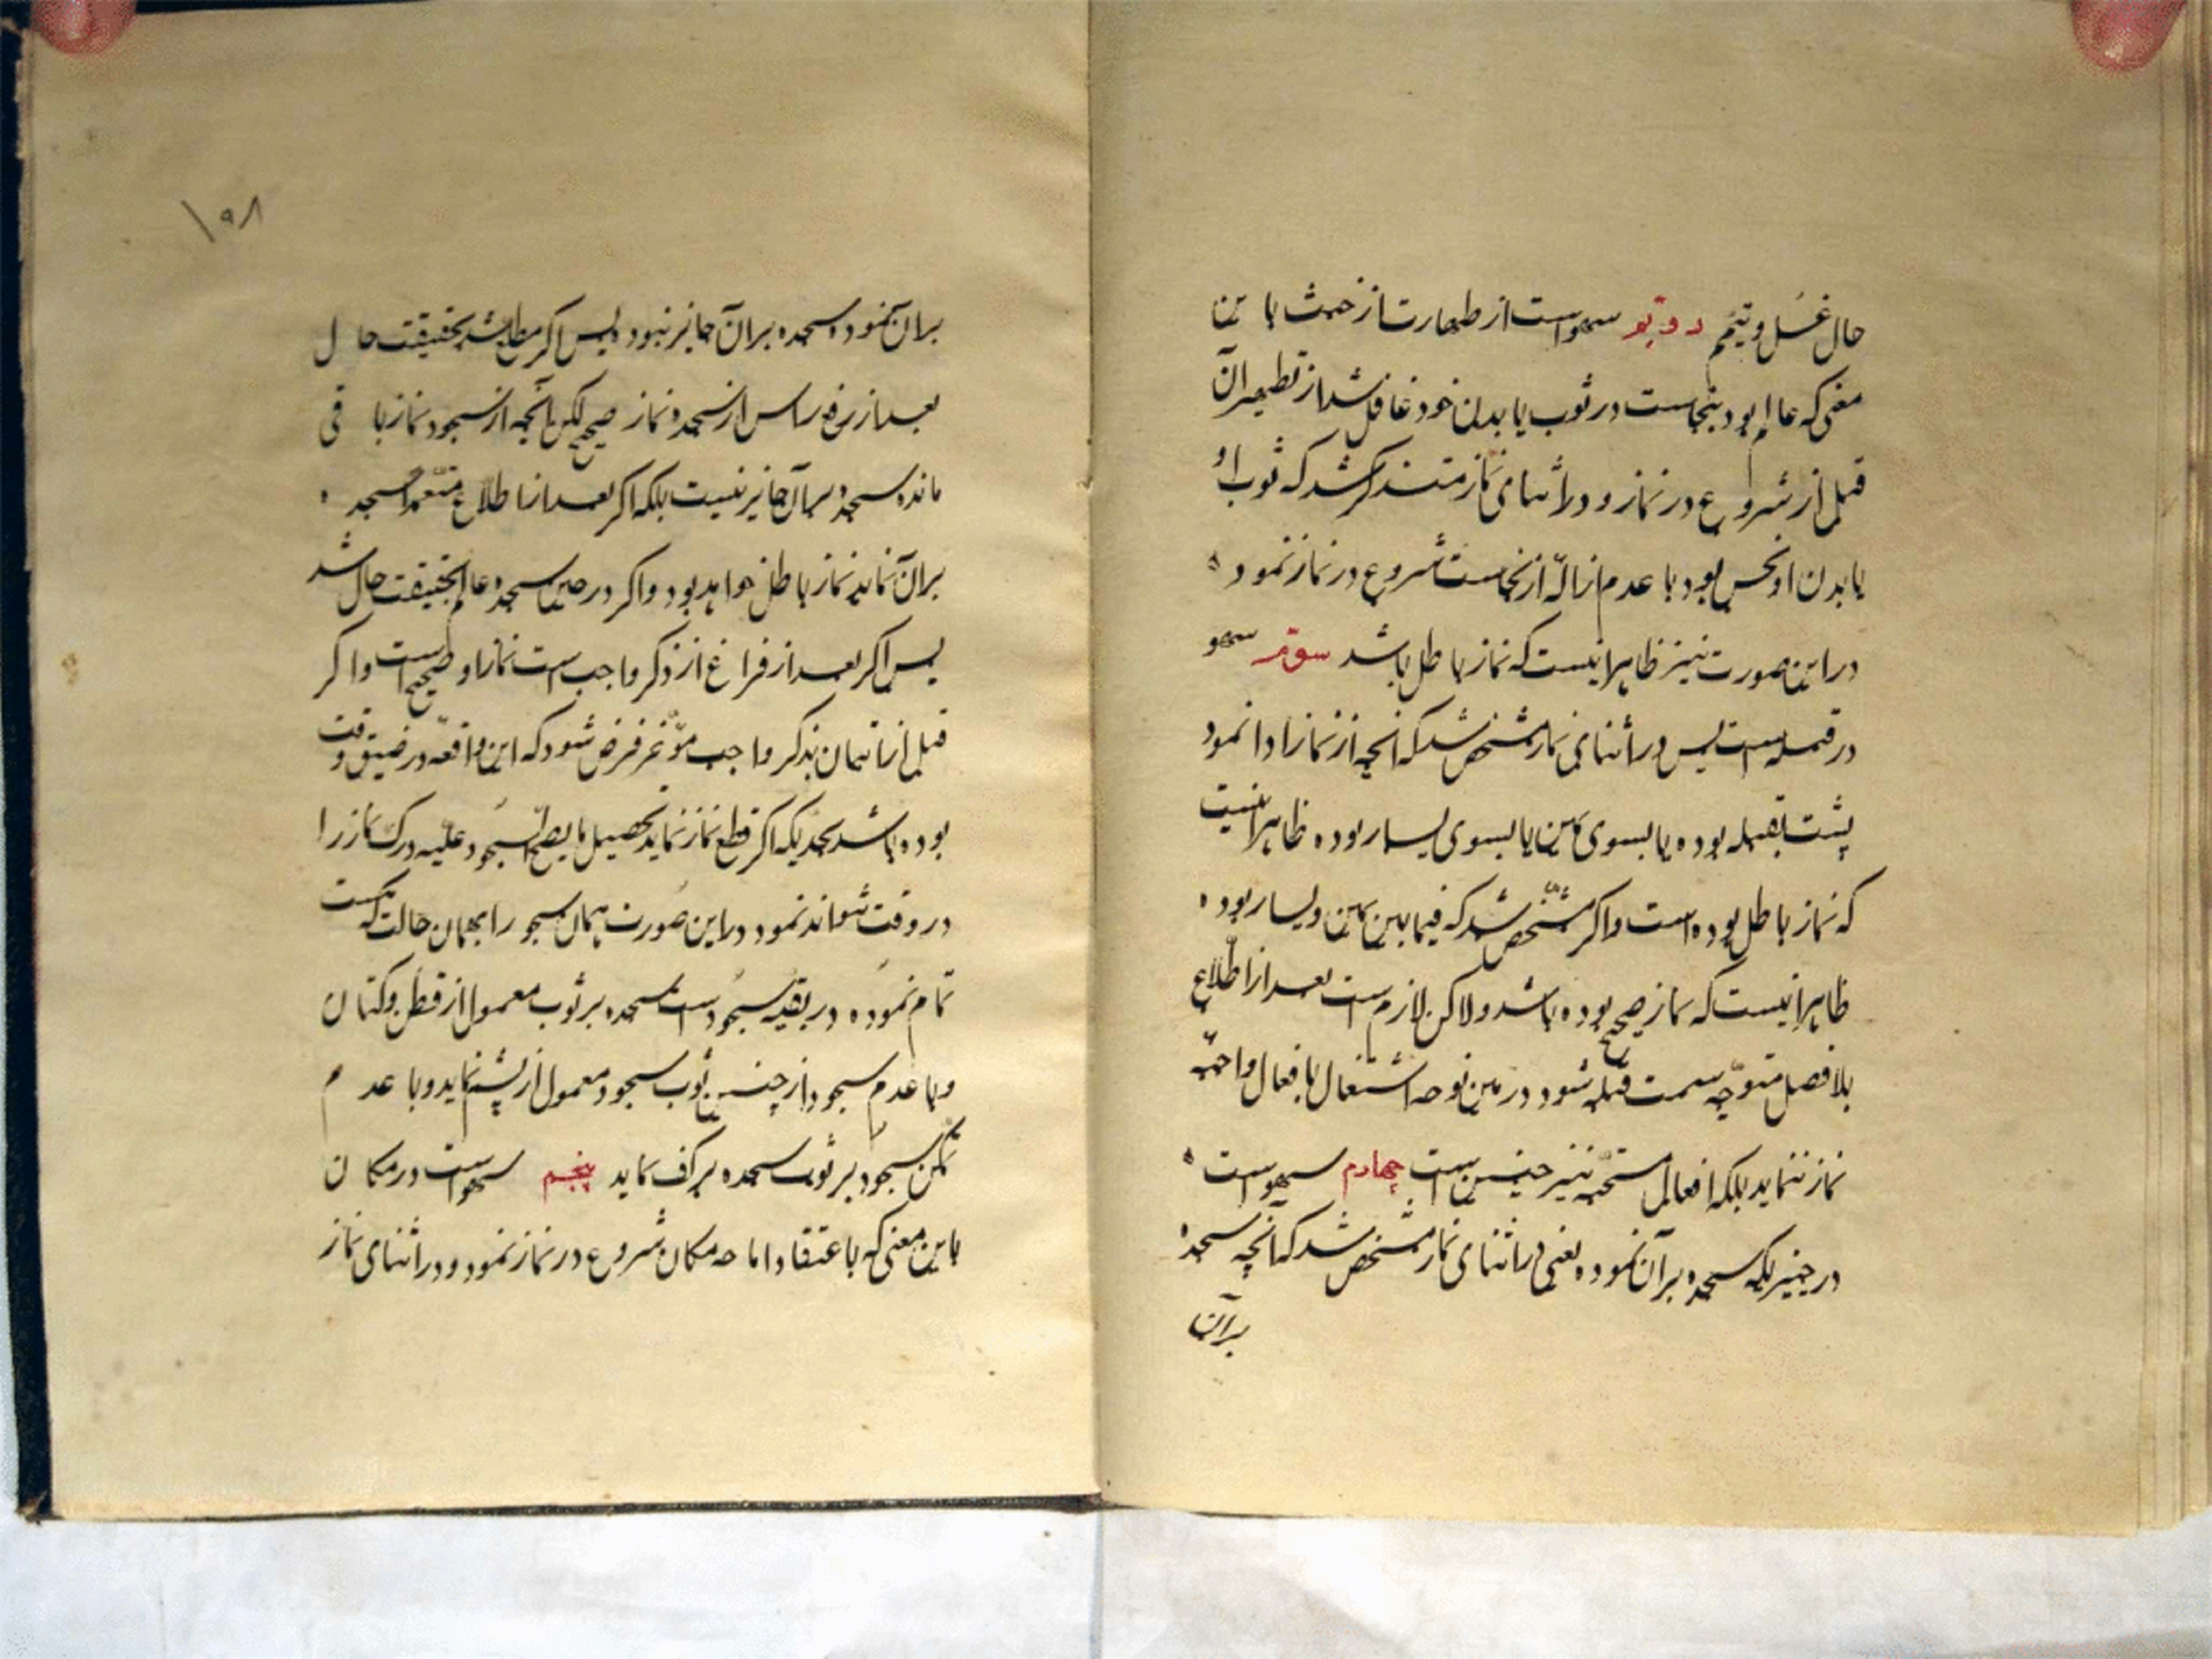 حال غُسل و تیمّم دویّم سهو است از طهارت از خبث باین
معنی که عالم بود بنجاست در ثوب یا بدن خود غافل شد از تطهیر آن
قبل از شروع در نماز و در اثنای نماز متذکر شد که ثوب او
یا بدن او نجس بود با عدم ازالهٔ از نجاست شروع در نماز نموده
در این صورت نیز ظاهر اینست که نماز باطل باشد سوّم سهو
در قبله است پس در اثنای نماز مشخص شد که آنچه از نماز ادا نمود
پشت بقبله بوده یا بسوی یمین یا بسوی یسار بوده ظاهر اینست
که نماز باطل بوده است و اگر مشخّص شد که فیما بین یمین و یسار بوده
ظاهر اینست که نماز صحیح بوده باشد ولاکن لازم است بعد از اطلاع
بلا فصل متوجّه سمت قبله شود در بین توجه اشتغال بافعال واجبه
نماز ننماید بلکه افعال مستحبّه نیز چنین است چهارم سهو است
در چیزیکه سجده بر آن نموده یعنی در اثنای نماز مشخص شد که آنچه سجده
بر آن
۱۵۸
بر آن نموده سجده بر آن جائز نبود پس اگر مطلع شد بحقیقت حال
بعد از رفع راس از سجده نماز صحیح لکن آنچه از سجود نماز باقی
مانده سجده بر آن جائز نیست بلکه اگر بعد از اطلاع متعمداً سجده
بر آن نماید نماز باطل خواهد بود و اگر در حین سجده عالم بحقیقت حال شد
پس اگر بعد از فراغ از ذکر واجب است نماز او صحیح است و اگر
قبل از اتیان بذکر واجب مؤخر فرض شود که این واقعه در ضیق وقت
بوده باشد بحدیکه اگر قطع نماز نماید تحصیل ما یصحّ السجود علیه درک نماز را
در وقت نتواند نمود در این صورت همان سجود را بهمان حالت که هست
تمام نموده در بقیه سجود است سجده بر ثوب معمول از قطن و کتان
و با عدم سجود از چنین ثوب سجود معمول از پشم نماید و با عدم
تمکّن سجود بر ثوب سجده بر کف نماید پنجم سهو است در مکان
باین معنی که باعتقاد اباحه مکان شروع در نماز نمود و در اثنای نماز